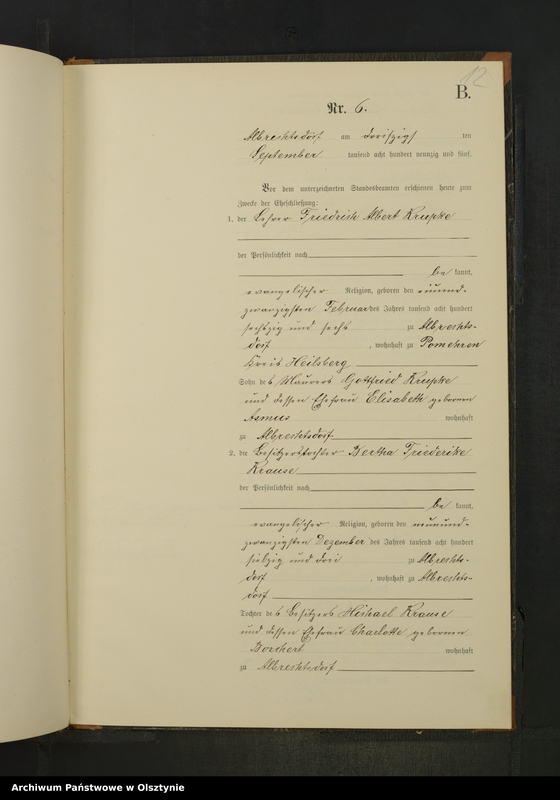 12
B.
Nr. 6.
Albrechtsdorf am dreißigsten
September tausend acht hundert neunzig und fünf.
Vor dem unterzeichneten Standesbeamten erschienen heute zum
Zwecke der Eheschließung:
1. der Lehrer Friedrich Albert Krupke
der Persönlichkeit nach
be kannt,
evangelischer Religion, geboren den
zwanzigsten Februar des Jahres tausend acht hundert
sechszig und sechs zu Albrechts-
dorf, wohnhaft zu Pomehren
Kreis Heilsberg
Sohn des Maurers Gottfried Krupke
und dessen Ehefrau Elisabeth geborenen
Asmus wohnhaft
zu Albrechtsdorf
2. die Besitzerstochter Bertha Friederike
Krause
der Persönlichkeit nach
be kannt,
evangelischer Religion, geboren den neunund-
zwanzigsten Dezember des Jahres tausend acht hundert
siebzig und drei zu Albrechts-
dorf, wohnhaft zu Albrechts-
dorf
Tochter des Besitzers Michael Krause
und dessen Ehefrau Charlotte geborenen
Borchert wohnhaft
zu Albrechtsdorf
Archiwum Państwowe w Olsztynie